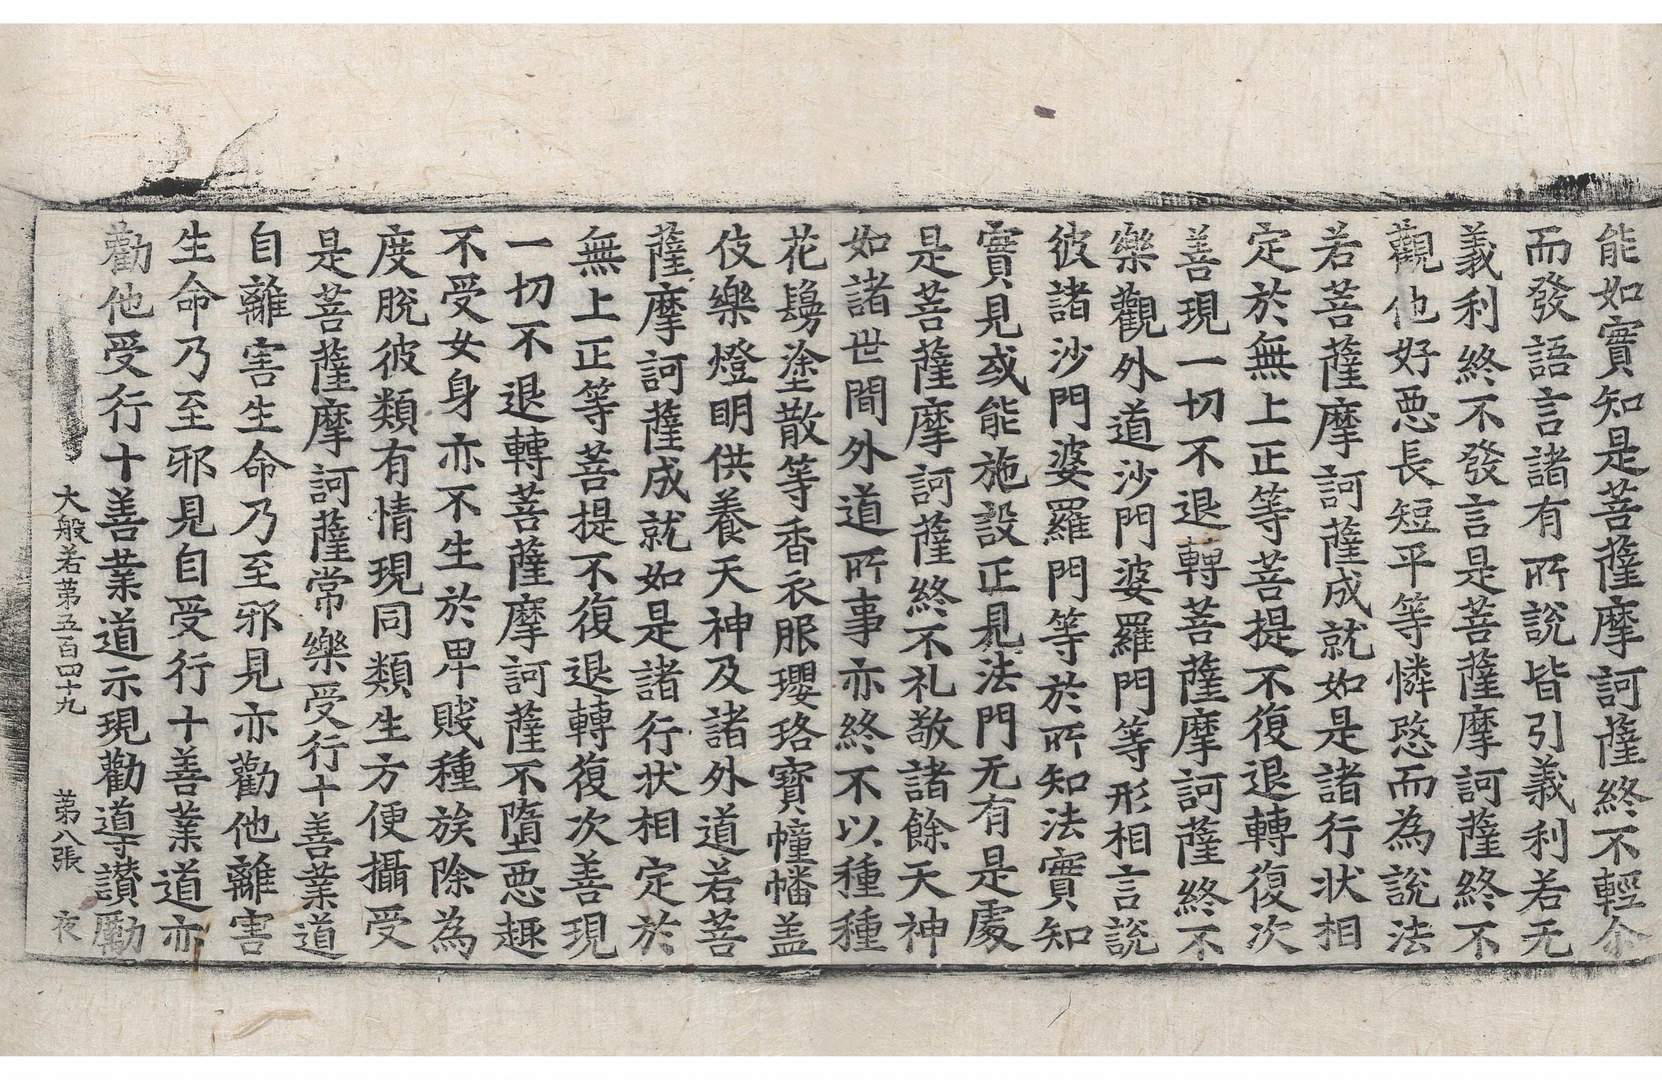 能如實知是菩薩摩訶薩終不輕尒
而發語言諸有所說皆引義利若无
義利終不發言是菩薩摩訶薩終不
觀他好惡長短平等憐愍而為說法
若菩薩摩訶薩成就如是諸行狀相
定於無上正等菩提不復退轉復次
善現一切不退轉菩薩摩訶薩終不
樂觀外道沙門婆羅門等形相言說
彼諸沙門婆羅門等於所知法實知
實見或能施設正見法門无有是處
是菩薩摩訶薩終不礼敬諸餘天神
如諸世間外道所事亦終不以種種
花鬘塗散等香衣服瓔珞寶幢幡盖
伎樂燈明供養天神及諸外道若菩
薩摩訶薩成就如是諸行狀相定於
無上正等菩提不復退轉復次善現
一切不退轉菩薩摩訶薩不墮惡趣
不受女身亦不生於卑賤種族除為
度脫彼類有情現同類生方便攝受
是菩薩摩訶薩常樂受行十善業道
自離害生命乃至邪見亦勸他離害
生命乃至邪見自受行十善業道亦
勸他受行十善業道示現勸導讃勵
大般若第五百四十九 第八張 夜